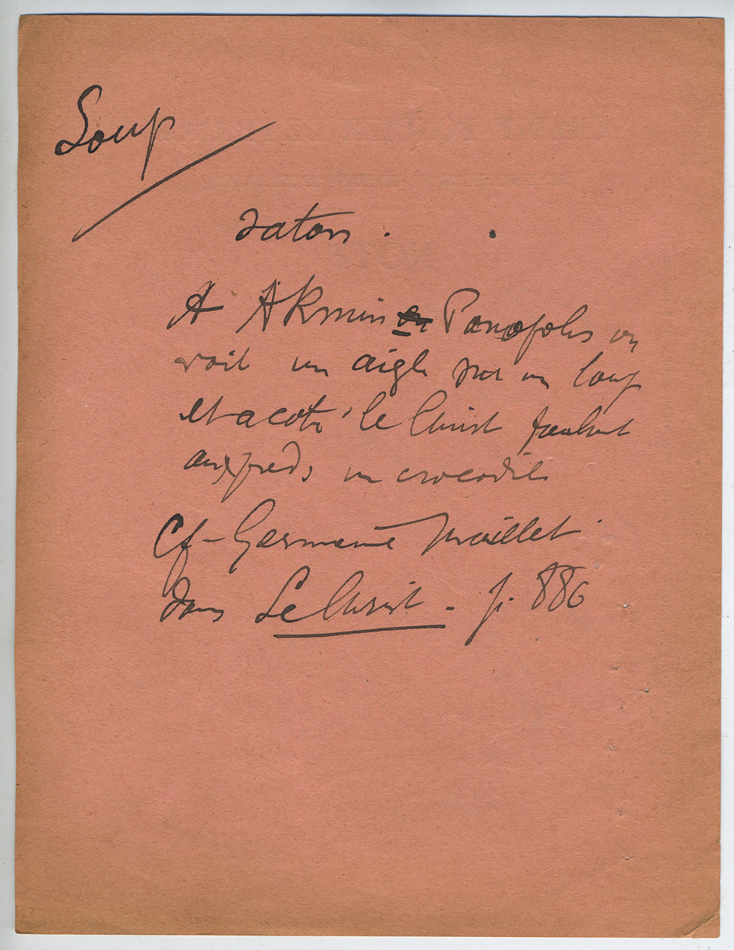 Loup
satan .
A AKmin ou Panopolis on
voit un aigle sur un loup
et a coté le Christ foulant
aux pieds un crocodile
Cf - Germaine Maillet
dans Le Christ - p. 886